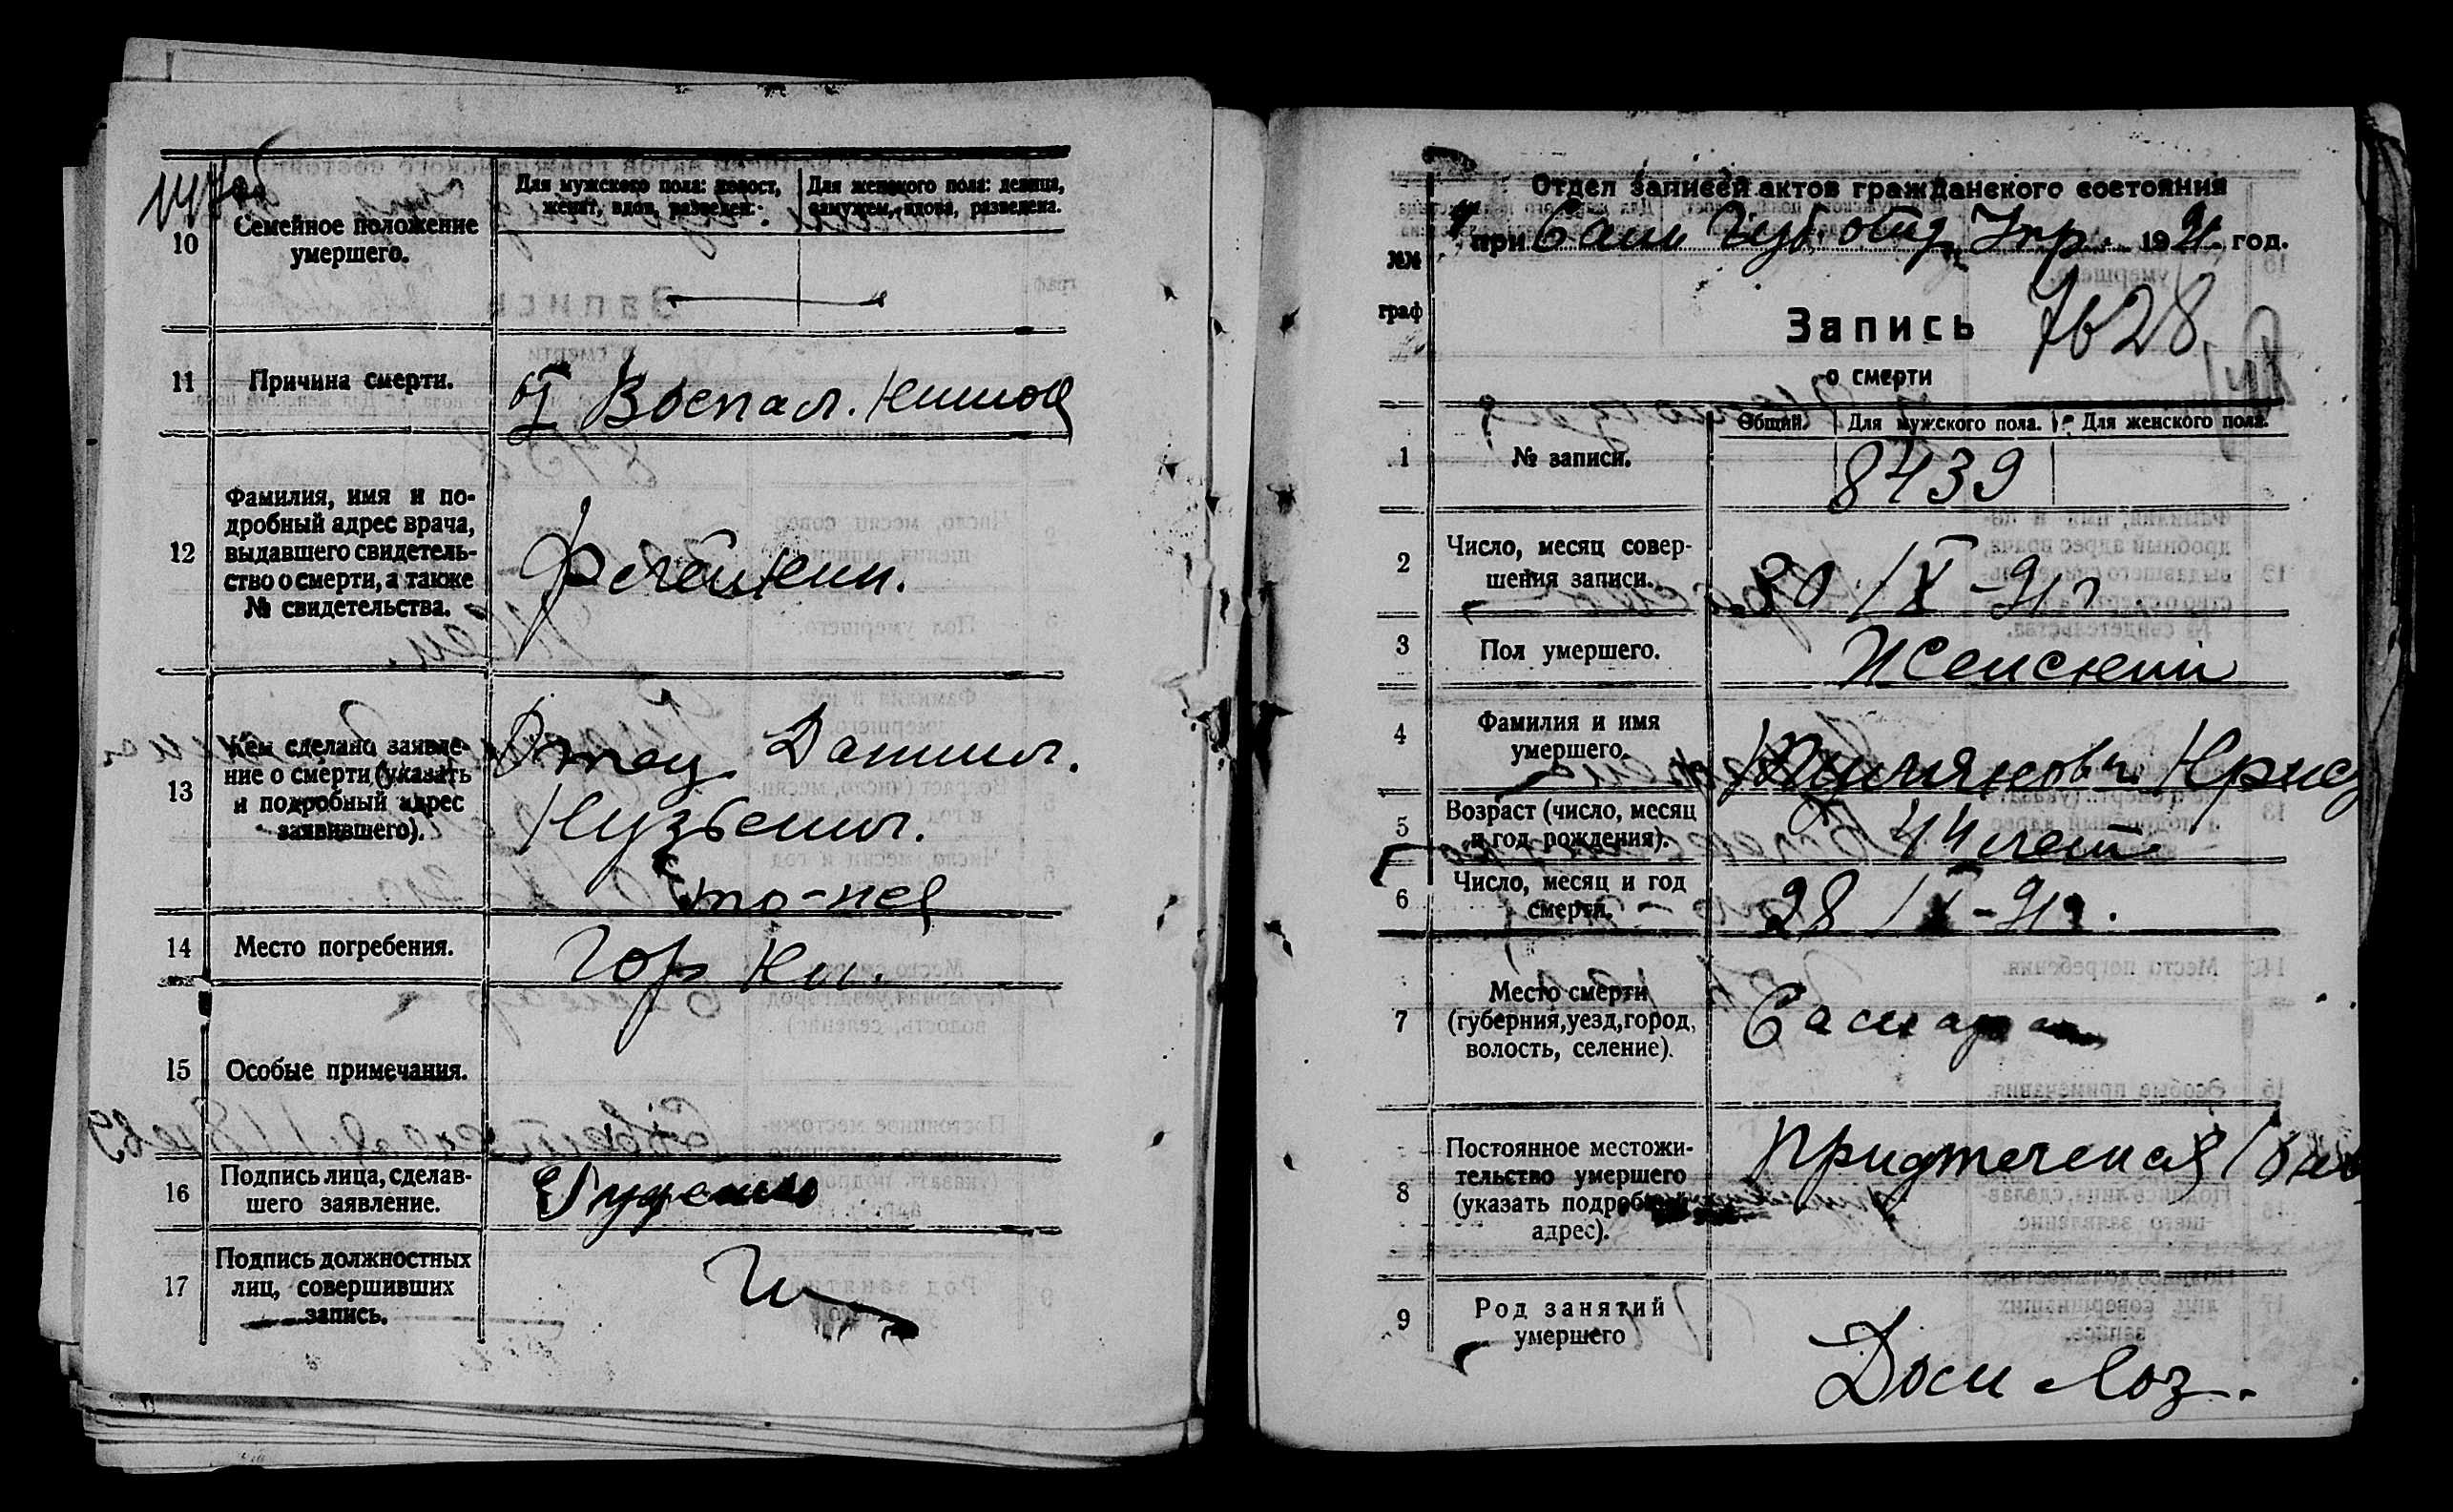 10
Семейное положение
умершего.
Для мужского пола: холост,
женат, вдов, разведен.
Для женского пола: девица,
замужем, вдова, разведена.
11
Причина смерти.
Воспал. кишок
12
Фамилия, имя и по-
дробный адрес врача,
выдавшего свидетель-
ство о смерти, а также
№ свидетельства.
13
Кем сделано заявле-
ние о смерти (указать
и подробный адрес
заявившего).
Отец Данил.
14
Место погребения.
Гор кл.
15
Особые примечания.
16
Подпись лица, сделав-
шего заявление.
17
Подпись должностных
лиц, совершивших
запись.
Отдел записей актов гражданского состояния
при Сам Губ. отд. Упр. 1921 год.
№№
граф
Запись 7628
о смерти
Общий Для мужского пола. Для женского пола.
1
№ записи.
8439
2
Число, месяц совер-
шения записи.
30 IX-21 г
3
Пол умершего.
Женский
4
Фамилия и имя
умершего.
5
Возраст (число, месяц
и год рождения).
44 лет
6
Число, месяц и год
смерти.
28 IX-21 г.
7
Место смерти
(губерния, уезд, город,
волость, селение).
Самара
8
Постоянное местожи-
тельство умершего
(указать подробный
адрес).
9
Род занятий
умершего
Дом хоз.